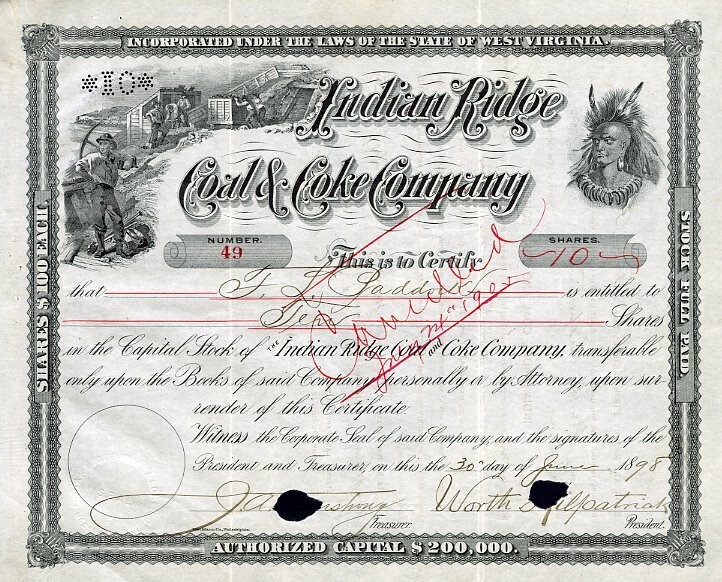 INCORPORATED UNDER THE LAWS OF THE STATE OF WEST VIRGINIA.
*10*
Indian Ridge
Coal & Coke Company
NUMBER.
49
SHARES.
10
This is to Certify
that F. L. Paddock is entitled to
Ten Shares
Cancelled
1902
in the Capital Stock of THE Indian Ridge Coal and Coke Company, transferable
only upon the Books of said Company personally or by Attorney, upon sur-
render of this Certificate.
Witness the Corporate Seal of said Company, and the signatures of the
President and Treasurer, on this the 30 day of June 1898
Worth Kilpatrick
Treasurer.
President.
SHARES $100 EACH.
STOCK FULL PAID.
AUTHORIZED CAPITAL $200,000.